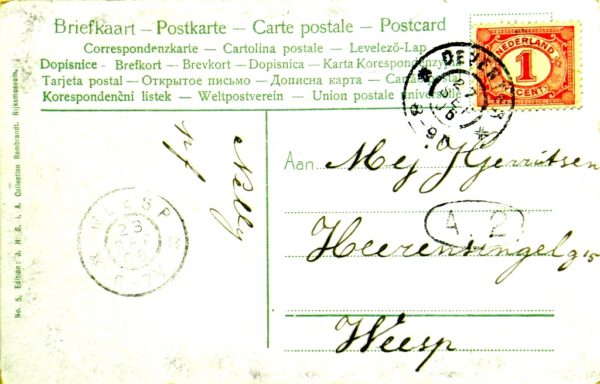 Briefkaart — Postkarte — Carte postale — Postcard
Correspondenzkarte — Cartolina postale — Levelező-Lap
Dopisnice — Brefkort — Brevkort — Dopisnica — Karta Korespondenzy
Tarjeta postal — Открытое письмо — Дописна карта —
Korespondenční listek — Weltpostverein — Union postale universe
NEDERLAND
1
CENT
DEVEN
Aan
Mej J Gerritsen
A 2
Heerensingel g 15
Weesp
Nelly
WEESP
23
No. 5. Edition: J. H. S. i. A. Collection Rembrandt. Rijksmuseum.